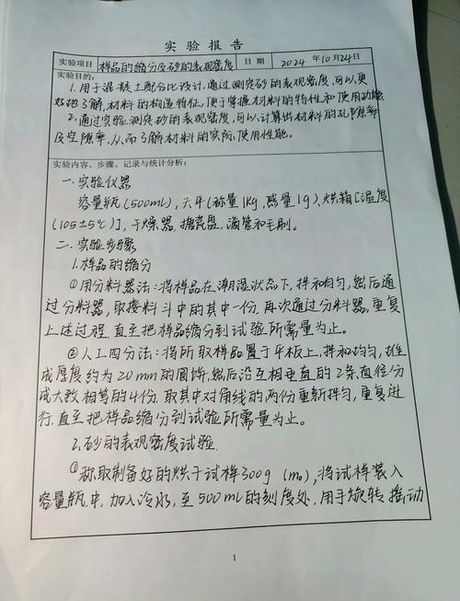 实验报告
实验项目 样品的缩分及砂的表观密度 日期 2024年10月24日
实验目的：
1. 用于混凝土配合比设计，通过测定砂的表观密度，可以更
好地了解材料的构造特征，便于掌握材料的特性和使用功能.
2. 通过实验测定砂的表观密度，可以计算出材料的孔隙率
及空隙率，从而了解材料的实际使用性能。
实验内容、步骤、记录与统计分析：
一. 实验仪器
容量瓶(500mL)，天平(称量1kg，感量1g)、烘箱[温度
(105±5℃)]，干燥器、搪瓷盘、滴管和毛刷。
二. 实验步骤
1. 样品的缩分
①用分料器法：将样品在潮湿状态下，拌和均匀，然后通
过分料器，取接料斗中的其中一份，再次通过分料器，重复
上述过程，直至把样品缩分到试验所需量为止。
②人工四分法：将所取样品置于平板上，拌和均匀，堆
成厚度约为20mm的圆饼，然后沿互相垂直的2条直径分
成大致相等的4份，取其中对角线的两份重新拌匀，重复进
行，直至把样品缩分到试验所需量为止。
2. 砂的表观密度试验
①称取制备好的烘干试样300g (m₀)，将试样装入
容量瓶中，加入冷水，至500mL的刻度处，用手旋转摇动
1